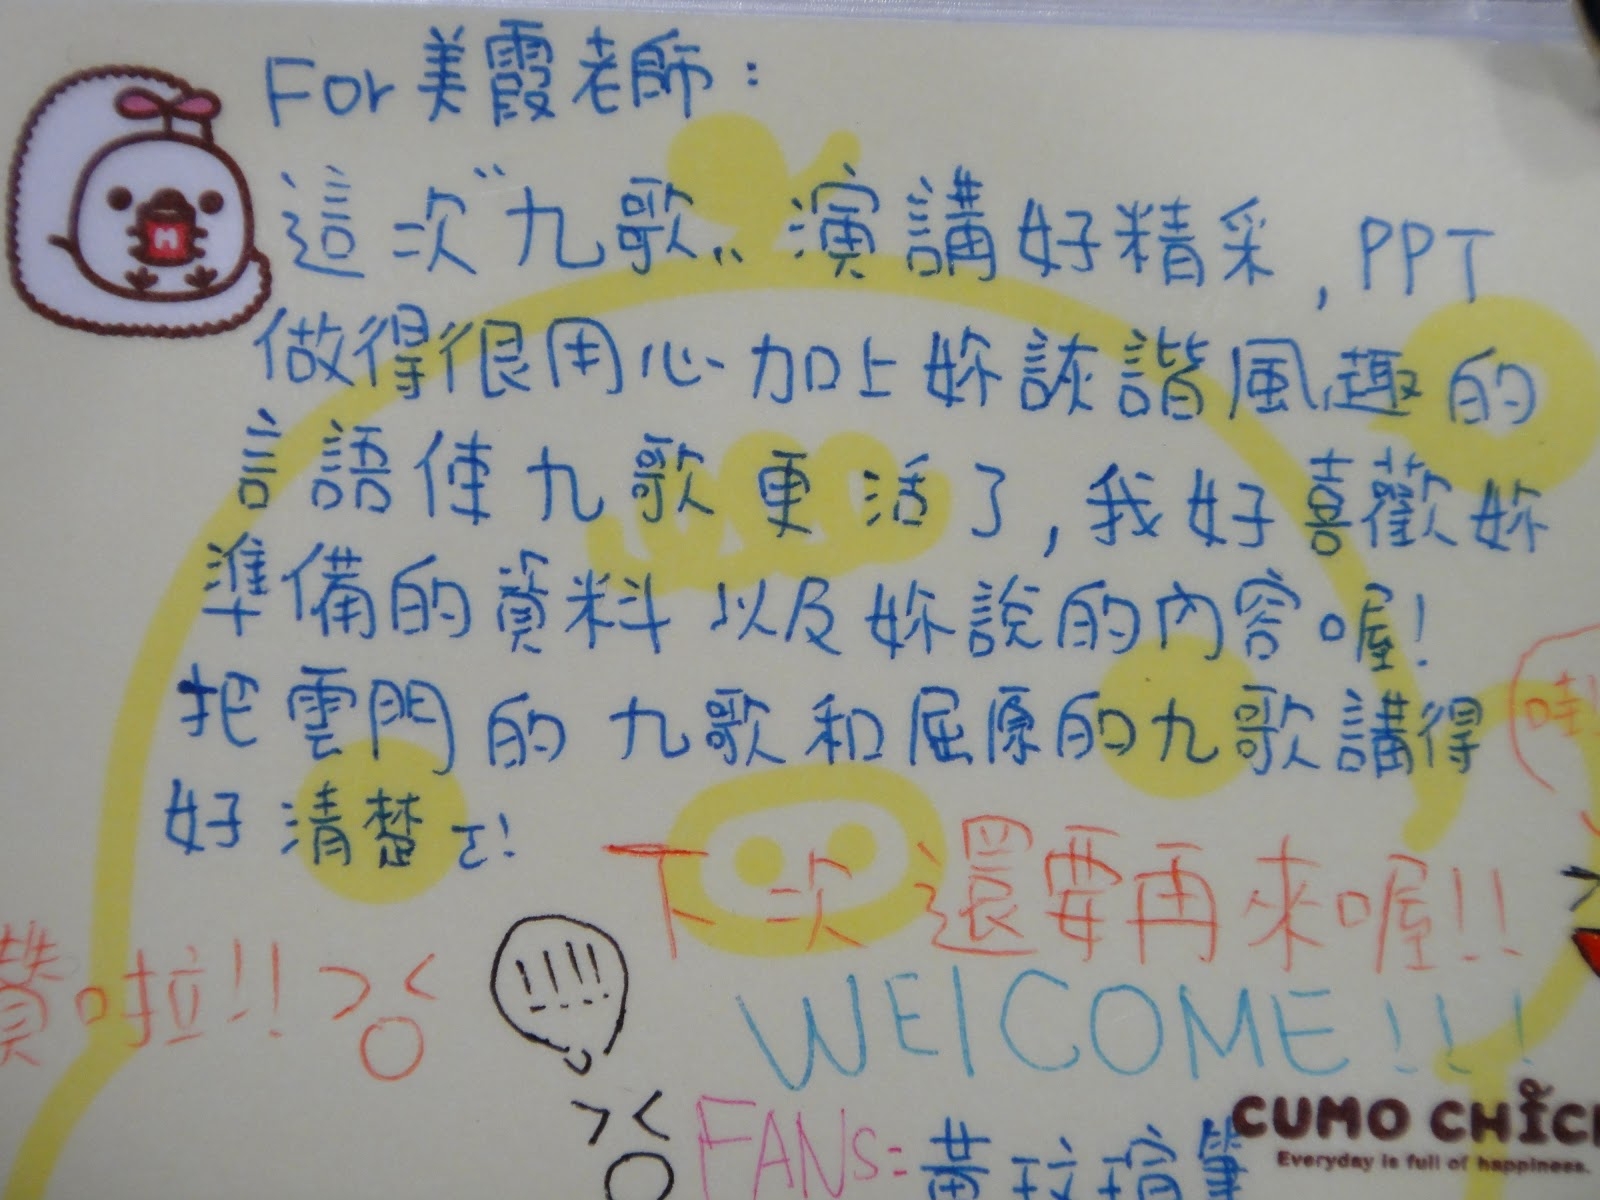 For 美霞老師:
這次"九歌"演講好精采,PPT
做得很用心加上妳詼諧風趣的
言語使九歌更活了,我好喜歡妳
準備的資料以及妳說的內容喔!
把雲門的九歌和屈原的九歌講得
好清楚ㄛ!
下次還要再來喔!!
讚啦!! >o<
!!!!
WElCOME!!!
>o<
FANs:黃玟瑄筆
哇
M
CUMO CHICK
Everyday is full of happiness.